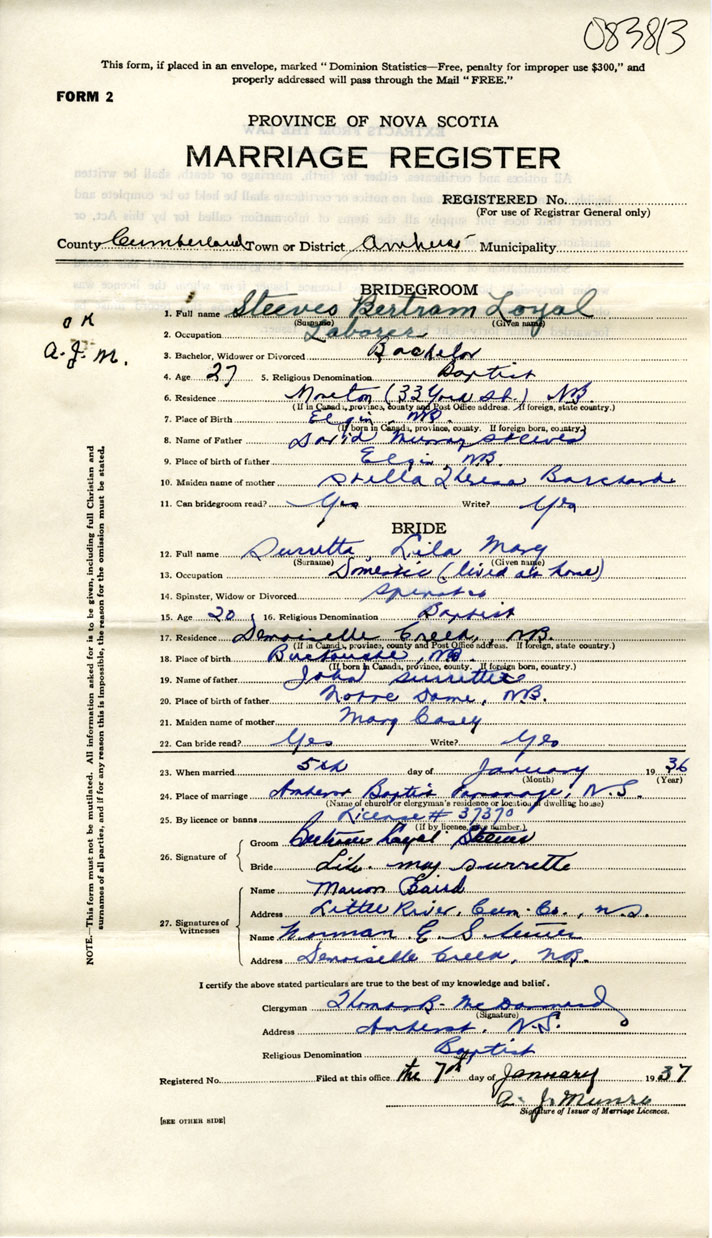 083813
This form, if placed in an envelope, marked "Dominion Statistics—Free, penalty for improper use $300," and
properly addressed will pass through the Mail "FREE."
FORM 2
PROVINCE OF NOVA SCOTIA
MARRIAGE REGISTER
REGISTERED No.
(For use of Registrar General only)
County Cumberland Town or District Amherst Municipality
BRIDEGROOM
OK
A.J.M.
1. Full name Steeves Bertram Loyal
(Surname) (Given name)
2. Occupation Laborer
3. Bachelor, Widower or Divorced Bachelor
4. Age 27 5. Religious Denomination Baptist
6. Residence Moncton (33 York St.) NB.
(If in Canada, province, county and Post Office address. If foreign, state country.)
7. Place of Birth Elgin, NB
(If born in Canada, province, county. If foreign born, country.)
8. Name of Father David Murray Steeves
9. Place of birth of father Elgin NB.
10. Maiden name of mother Stella Theresa
11. Can bridegroom read? Yes Write? Yes
BRIDE
12. Full name Surrette Lila Mary
(Surname) (Given name)
13. Occupation Domestic (lived at home)
14. Spinster, Widow or Divorced Spinster
15. Age 20 16. Religious Denomination Baptist
17. Residence Demoiselle Creek, NB.
(If in Canada, province, county and Post Office address. If foreign, state country.)
18. Place of birth Buctouche, NB.
(If born in Canada, province, county. If foreign born, country.)
19. Name of father John Surrette
20. Place of birth of father Notre Dame, NB.
21. Maiden name of mother Mary Casey
22. Can bride read? Yes Write? Yes
23. When married 5th day of January 1936
(Month) (Year)
24. Place of marriage Amherst Baptist Parsonage, N.S.
(Name of church or clergyman's residence or location of dwelling house)
25. By licence or banns License # 37370
(If by licence, give number.)
26. Signature of
Groom Bertram Loyal Steeves
Bride Lila May Surrette
27. Signatures of Witnesses
Name Marion Baird
Address Little River, Cum. Co., N.S.
Name Norman E. Steeves
Address Demoiselle Creek, NB.
I certify the above stated particulars are true to the best of my knowledge and belief.
Clergyman Thomas B.
(Signature)
Address Amherst, N.S.
Religious Denomination Baptist
Registered No. Filed at this office the 7th day of January 1937
A. J. Munro
Signature of Issuer of Marriage Licences.
[SEE OTHER SIDE]
NOTE.—This form must not be mutilated. All information asked for is to be given, including full Christian and
surnames of all parties, and if for any reason this is impossible, the reason for the omission must be stated.